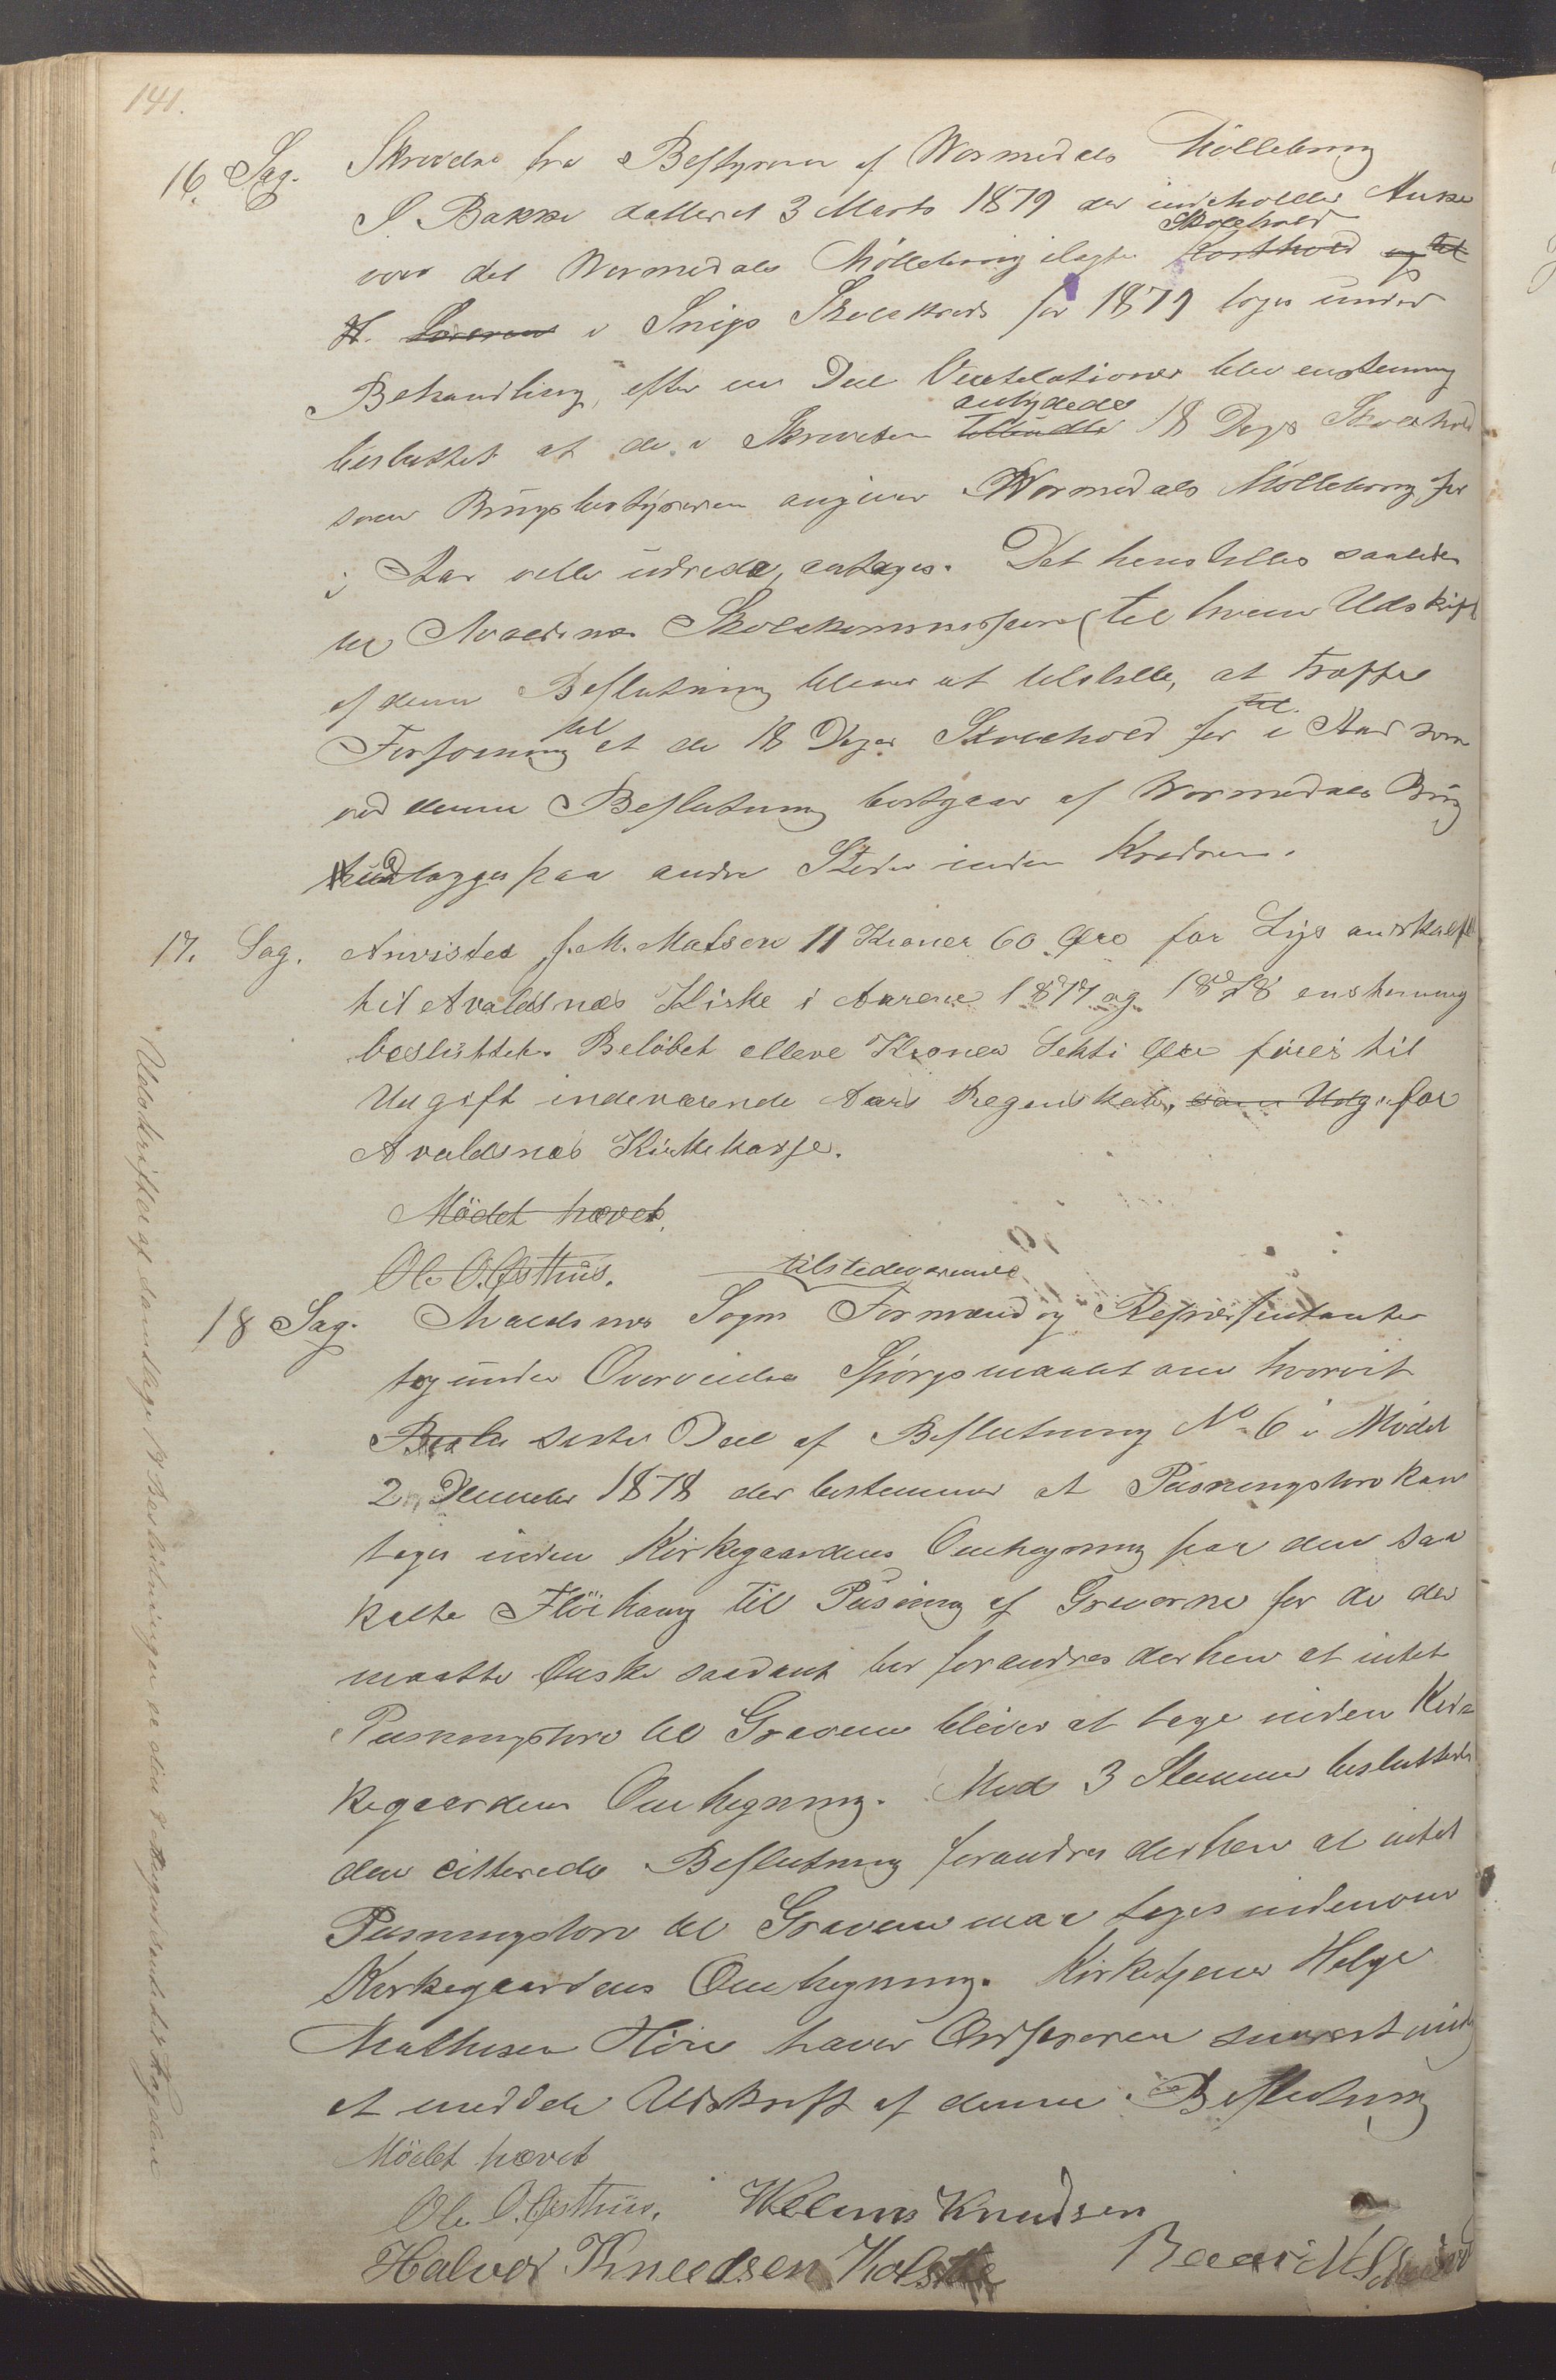 141.
16. Sag. Skrivelse fra Bestyreren af Wormedals Møllebrug
P. Bakke datteret 3 Marts 1879 der indeholder Anke
over det Wormedals Møllebrug ilagte Kosthold og til
Skolehold
H. i Snigs Skolekreds for 1879 toges under
Behandling, efter en Deel Ventelationer blev enstemmig
besluttet at de i Skrivelsen tilbudte 18 Dages Skolehold
antydede
som Brugsbestyreren angiver Wormedals Møllebrug for
i Aar ville udrede, antages. Det henstilles saaledes
til Avaldsnæs Skolekommission (til hvem Udskrift
af denne Beslutning bliver at tilstille, at træffe
Forføining til at de 18 Dages Skolehold for i Aar som
til
ved denne Beslutning bortgaar af Wormedals Brug
udlægges paa andre Steder inden Kredsen.
17. Sag. Anvistes J. M. Matsen 11 Kroner 60 Øre for Lys anskaffet
til Avaldsnæs Kirke i Aarene 1877 og 1878 enstemmig
besluttet. Beløbet elleve Kroner Seksti Øre føres til
Udgift indeværende Aars Regnskab, som Udg. for
Avaldsnæs Kirkekasse.
Mødet hævet.
Ole O. Østhus.
tilstedeværende
18 Sag. Avaldsnæs Sogns Formænd og Repræsentanter
tog under Overveielse Spørgsmaalet om hvorvit
sidste Deel af Beslutning No 6 i Mødet
2 December 1878 der bestemmer at Pusningstorv kan
tages inden Kirkegaardens Omhegning paa den saa
kalte Flöihaug til Pusning af Gravene for de der
maatte Ønske saadant bør forandres derhen at intet
Pusningstorv til Gravene bliver at tage inden Kir-
kegaardens Omhegning. Med 3 Stemmer besluttedes
den citterede Beslutning forandres derhen at intet
Pusningstorv til Gravene maa tages indenom
Kirkegaardens Omhegning. Kirketjener Helge
Mathisen Høie haver Ordføreren snarest mulig
at meddele Udskrift af denne Beslutning
Mödet hævet
Ole O. Østhus. Willums Knudsen
Halvor Knudsen Kolstø
Udskrifter af samtlige Beslutninger